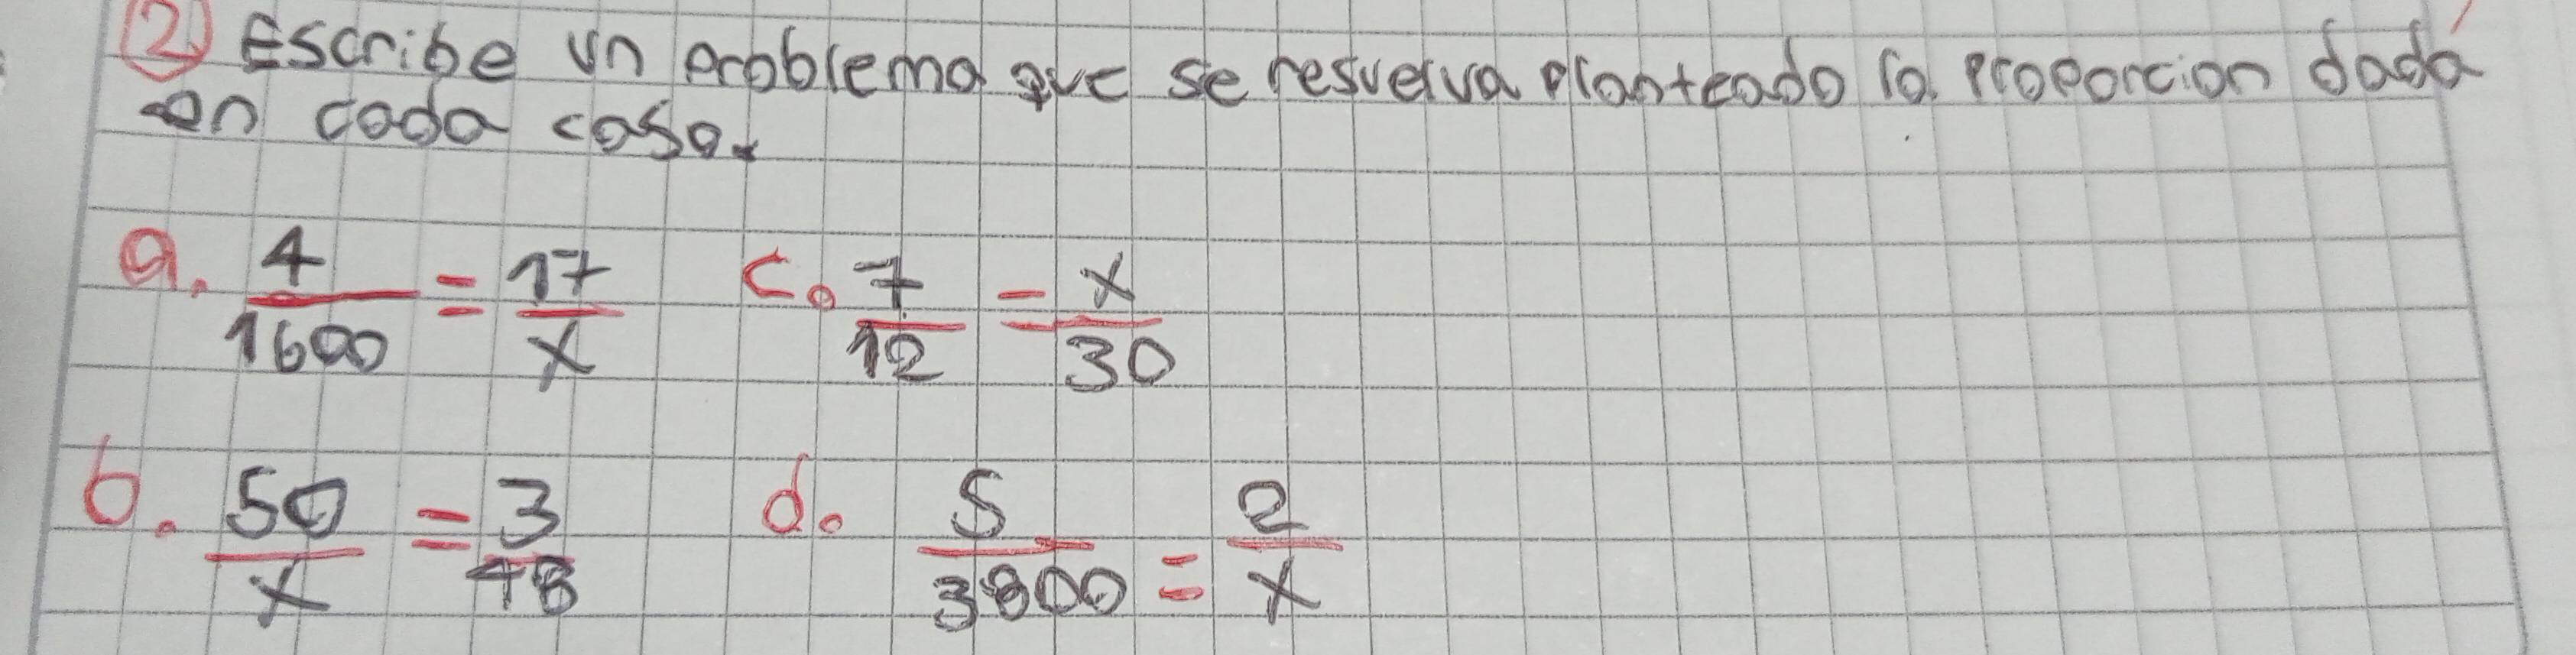 2 Escribe un problema que se resuelva planteado la proporcion dada
en cada caso.
a. 4/1600 = 17/x c. 7/12 = x/30
b. 50/x = 3/48 d. 5/3800 = 2/x